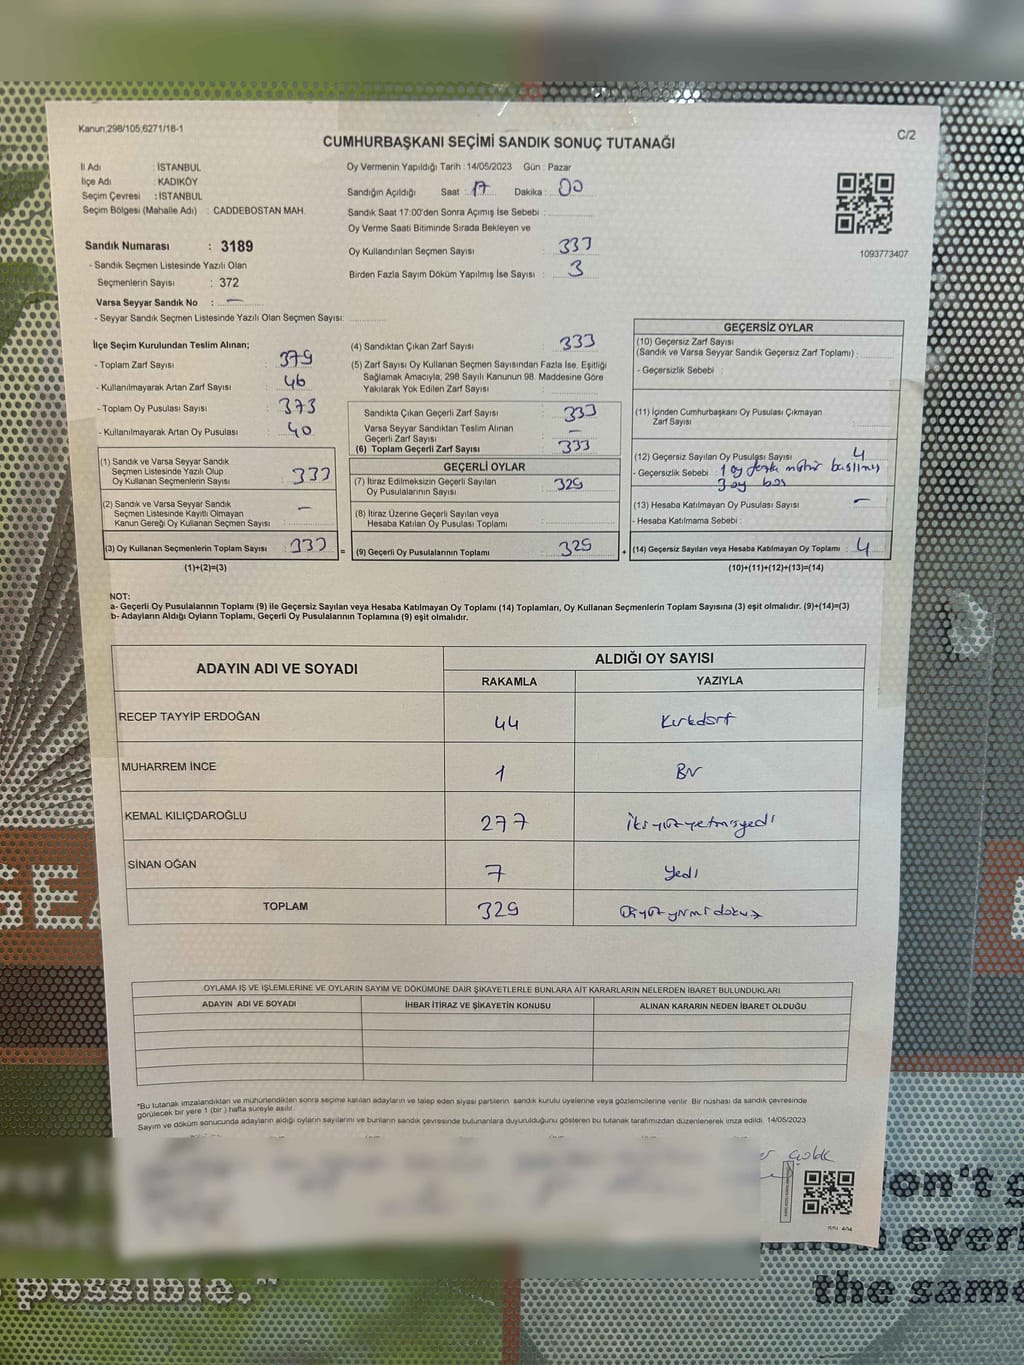 Kanun;298/105;6271/18-1
C/2
CUMHURBAŞKANI SEÇİMİ SANDIK SONUÇ TUTANAĞI
İl Adı : İSTANBUL
İlçe Adı : KADIKÖY
Seçim Çevresi : İSTANBUL
Seçim Bölgesi (Mahalle Adı) : CADDEBOSTAN MAH.
Sandık Numarası : 3189
- Sandık Seçmen Listesinde Yazılı Olan
Seçmenlerin Sayısı : 372
Varsa Seyyar Sandık No : —
- Seyyar Sandık Seçmen Listesinde Yazılı Olan Seçmen Sayısı:
Oy Vermenin Yapıldığı Tarih : 14/05/2023 Gün : Pazar
Sandığın Açıldığı Saat : 17 Dakika : 00
Sandık Saat 17:00'den Sonra Açımış İse Sebebi :
Oy Verme Saati Bitiminde Sırada Bekleyen ve
Oy Kullandırılan Seçmen Sayısı : 333
Birden Fazla Sayım Döküm Yapılmış İse Sayısı : 3
1093773407
İlçe Seçim Kurulundan Teslim Alınan;
- Toplam Zarf Sayısı : 379
- Kullanılmayarak Artan Zarf Sayısı : 46
- Toplam Oy Pusulası Sayısı : 373
- Kullanılmayarak Artan Oy Pusulası : 40
(1) Sandık ve Varsa Seyyar Sandık
Seçmen Listesinde Yazılı Olup
Oy Kullanan Seçmenlerin Sayısı : 333
(2) Sandık ve Varsa Seyyar Sandık
Seçmen Listesinde Kayıtlı Olmayan
Kanun Gereği Oy Kullanan Seçmen Sayısı : —
(3) Oy Kullanan Seçmenlerin Toplam Sayısı : 333
=
(1)+(2)=(3)
(4) Sandıktan Çıkan Zarf Sayısı : 333
(5) Zarf Sayısı Oy Kullanan Seçmen Sayısından Fazla İse, Eşitliği
Sağlamak Amacıyla, 298 Sayılı Kanunun 98. Maddesine Göre
Yakılarak Yok Edilen Zarf Sayısı :
Sandıkta Çıkan Geçerli Zarf Sayısı : 333
Varsa Seyyar Sandıktan Teslim Alınan
Geçerli Zarf Sayısı : —
(6) Toplam Geçerli Zarf Sayısı : 333
GEÇERLİ OYLAR
(7) İtiraz Edilmeksizin Geçerli Sayılan
Oy Pusulalarının Sayısı : 329
(8) İtiraz Üzerine Geçerli Sayılan veya
Hesaba Katılan Oy Pusulası Toplamı :
(9) Geçerli Oy Pusulalarının Toplamı : 329
+
GEÇERSİZ OYLAR
(10) Geçersiz Zarf Sayısı
(Sandık ve Varsa Seyyar Sandık Geçersiz Zarf Toplamı) :
- Geçersizlik Sebebi :
(11) İçinden Cumhurbaşkanı Oy Pusulası Çıkmayan
Zarf Sayısı :
(12) Geçersiz Sayılan Oy Pusulası Sayısı : 4
- Geçersizlik Sebebi : 1 oy fazla mühür basılmış
3 oy boş
(13) Hesaba Katılmayan Oy Pusulası Sayısı : —
- Hesaba Katılmama Sebebi :
(14) Geçersiz Sayılan veya Hesaba Katılmayan Oy Toplamı : 4
(10)+(11)+(12)+(13)=(14)
NOT:
a- Geçerli Oy Pusulalarının Toplamı (9) ile Geçersiz Sayılan veya Hesaba Katılmayan Oy Toplamı (14) Toplamları, Oy Kullanan Seçmenlerin Toplam Sayısına (3) eşit olmalıdır. (9)+(14)=(3)
b- Adayların Aldığı Oyların Toplamı, Geçerli Oy Pusulalarının Toplamına (9) eşit olmalıdır.
ADAYIN ADI VE SOYADI
ALDIĞI OY SAYISI
RAKAMLA YAZIYLA
RECEP TAYYİP ERDOĞAN 44 Kırkdört
MUHARREM İNCE 1 Bir
KEMAL KILIÇDAROĞLU 277 İkiyüzyetmişyedi
SİNAN OĞAN 7 Yedi
TOPLAM 329 Üçyüzyirmidokuz
OYLAMA İŞ VE İŞLEMLERİNE VE OYLARIN SAYIM VE DÖKÜMÜNE DAİR ŞİKAYETLERLE BUNLARA AİT KARARLARIN NELERDEN İBARET BULUNDUKLARI
ADAYIN ADI VE SOYADI İHBAR İTİRAZ VE ŞİKAYETİN KONUSU ALINAN KARARIN NEDEN İBARET OLDUĞU
*Bu tutanak imzalandıktan ve mühürlendikten sonra seçime katılan adayların ve talep eden siyasi partilerin sandık kurulu üyelerine veya gözlemcilerine verilir. Bir nüshası da sandık çevresinde
görülecek bir yere 1 (bir ) hafta süreyle asılır.
Sayım ve döküm sonucunda adayların aldığı oyların sayılarını ve bunların sandık çevresinde bulunanlara duyurulduğunu gösteren bu tutanak tarafımızdan düzenlenerek imza edildi. 14/05/2023
on't g
ever
possible."
the same